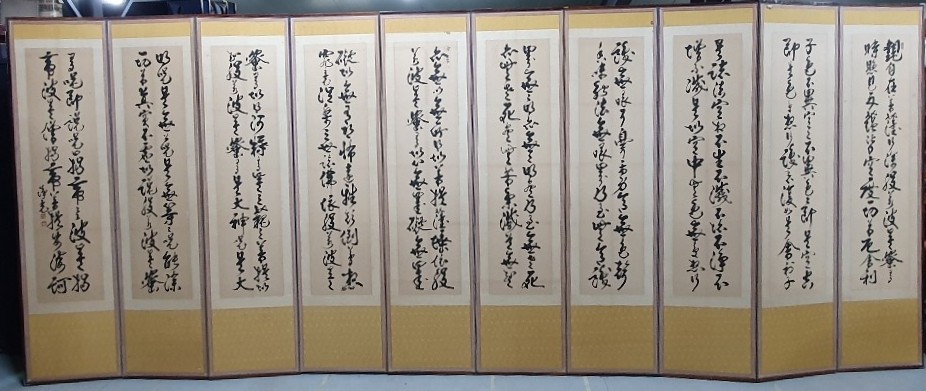 觀自在菩薩行深般若波羅蜜多
時照見五蘊皆空度一切苦厄舍利
子色不異空空不異色色即是空空
即是色受想行識亦復如是舍利子
是諸法空相不生不滅不垢不淨不
增不減是故空中無色無受想行
識無眼耳鼻舌身意無色聲
香味觸法無眼界乃至無意識
界無無明亦無無明盡乃至無老死
亦無老死盡無苦集滅道無智
亦無得以無所得故菩提薩埵依般
若波羅蜜多故心無罣礙無罣
礙故無有恐怖遠離顛倒夢想
究竟涅槃三世諸佛依般若波羅
蜜多故得阿耨多羅三藐三菩提故知
般若波羅蜜多是大神咒是大
明咒是無上咒是無等等咒能除
一切苦真實不虛故說般若波羅蜜
多咒即說咒曰揭帝揭帝波羅揭
帝波羅僧揭帝菩提娑婆訶